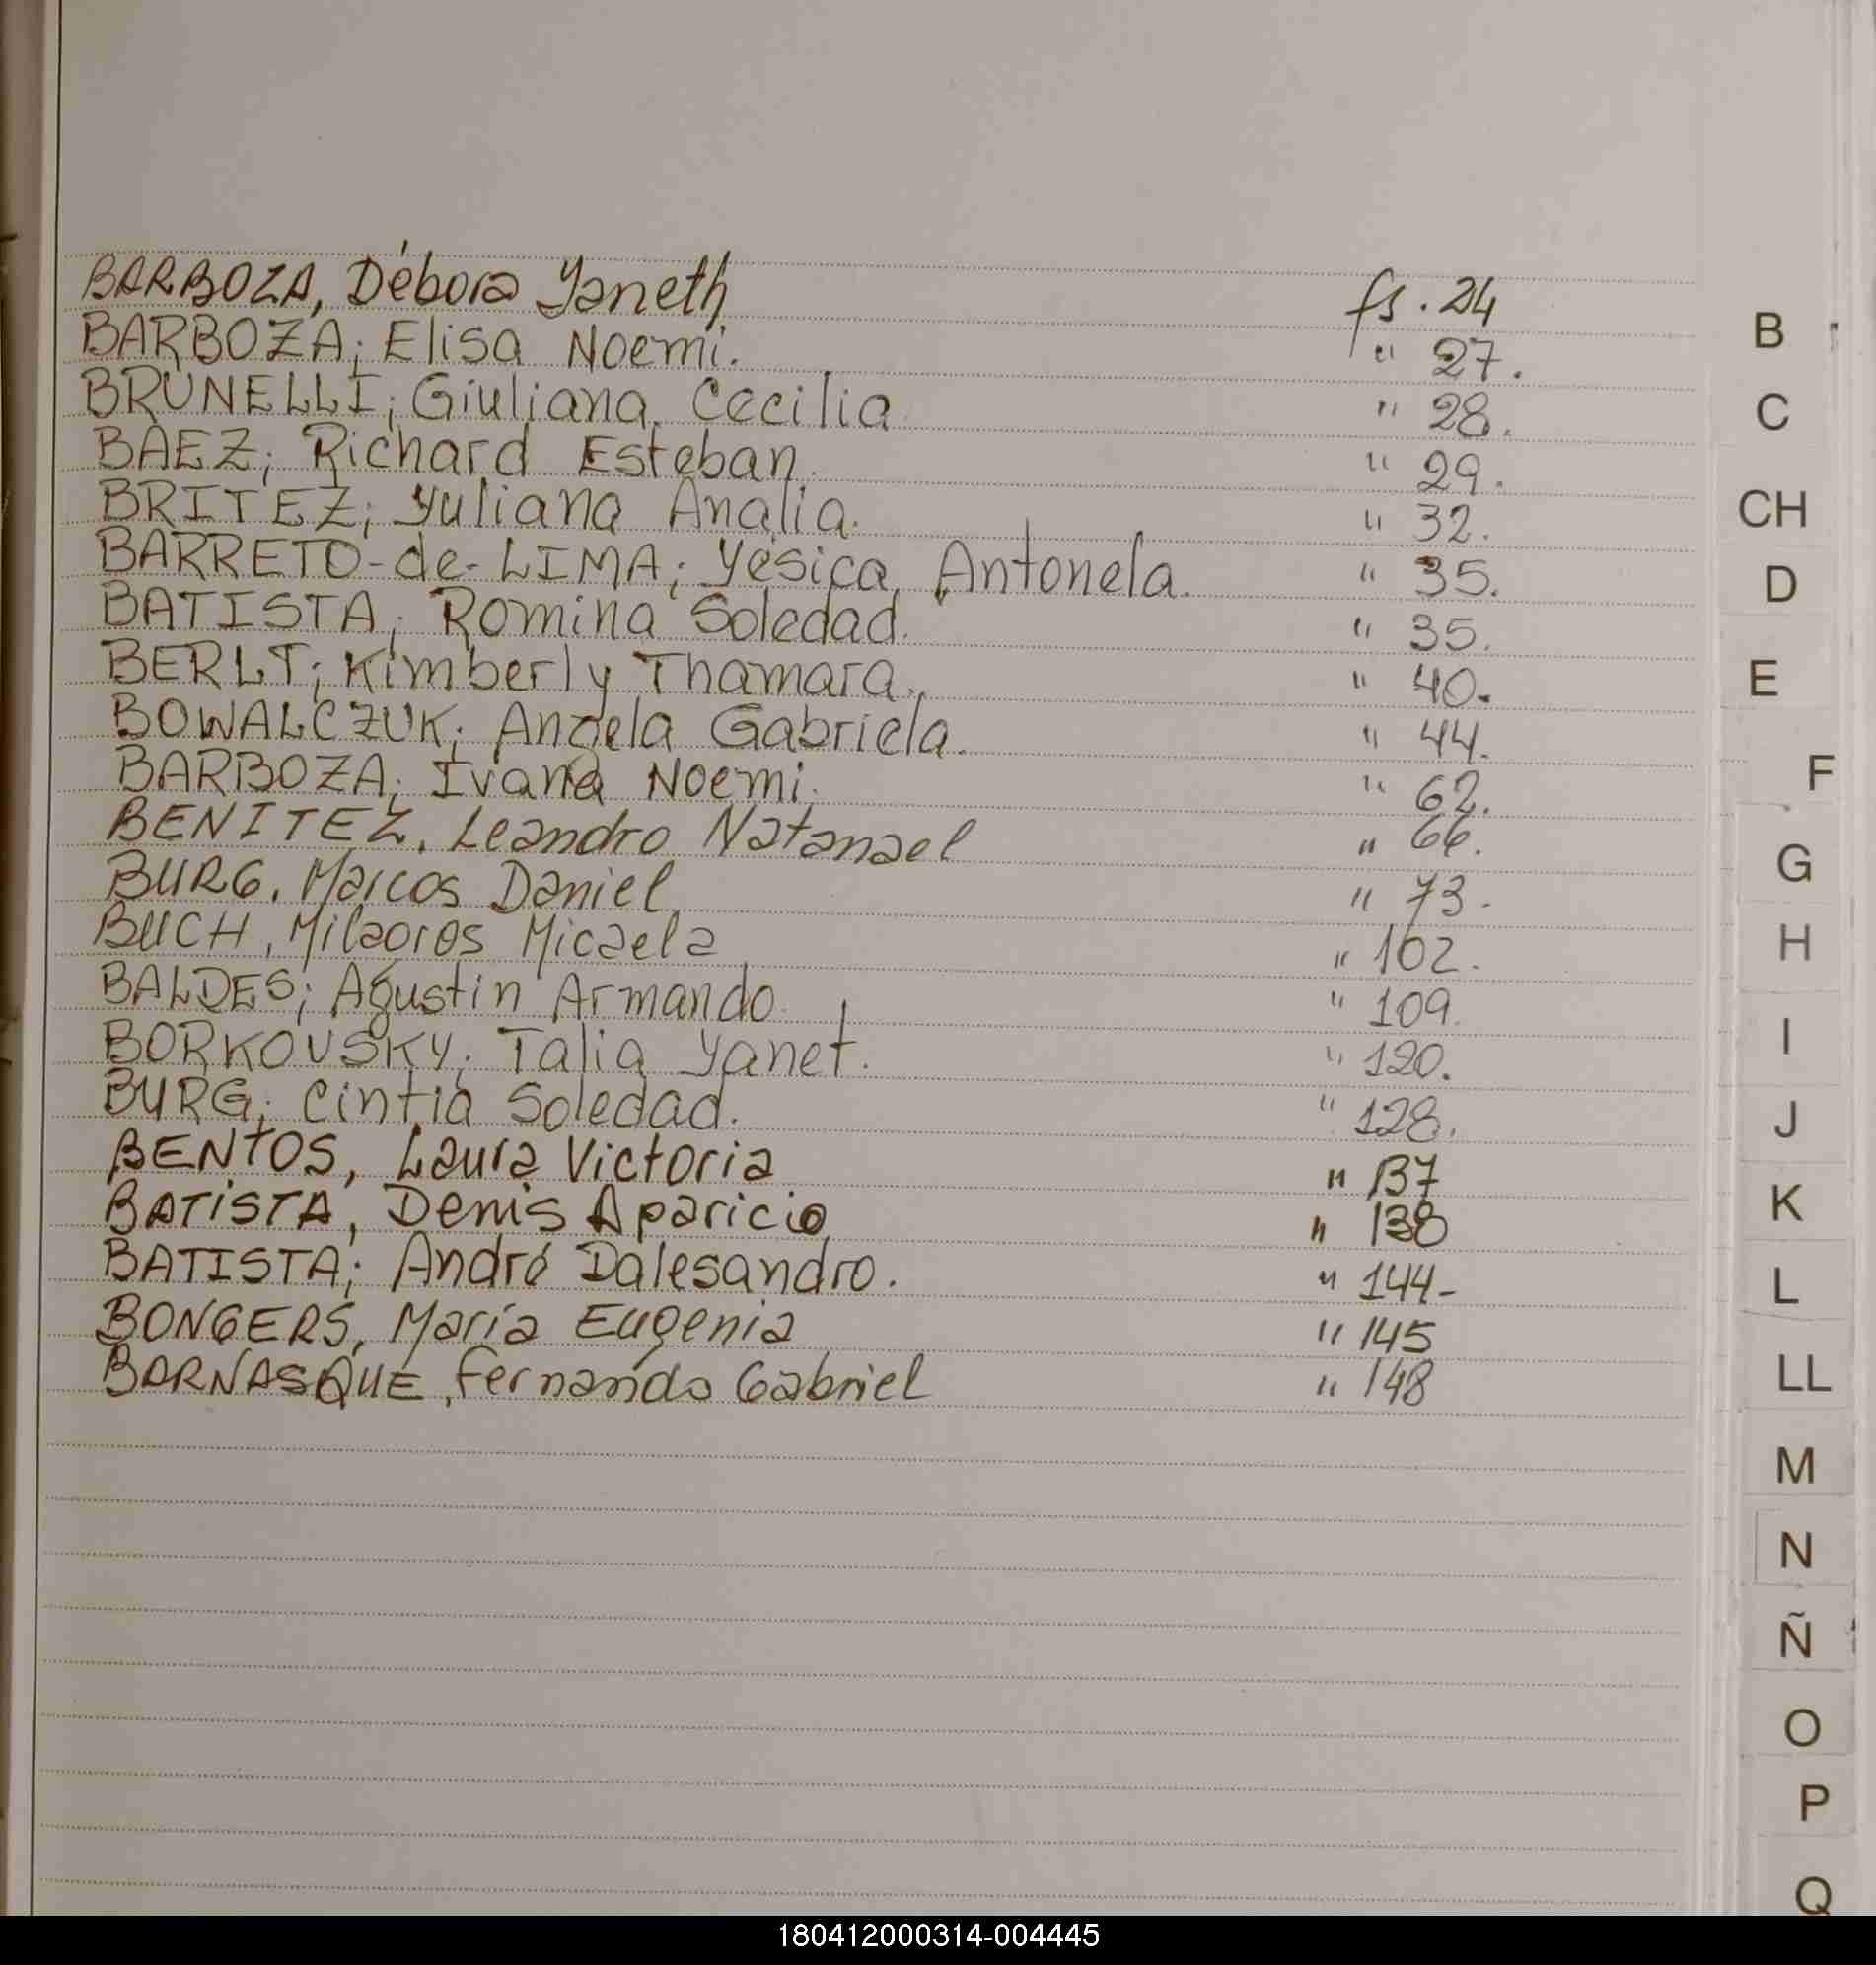 BARBOZA, Débora Yaneth fs. 24
BARBOZA; Elisa Noemi. " 27.
BRUNELLI; Giuliana Cecilia " 28.
BAEZ; Richard Esteban. " 29.
BRITEZ; Yuliana Analia. " 32.
BARRETO-de-LIMA; Yésica Antonela. " 35.
BATISTA; Romina Soledad. " 35.
BERLT; Kimberly Thamara. " 40.
BOWALCZUK; Angela Gabriela. " 44.
BARBOZA; Ivana Noemi. " 62.
BENITEZ, Leandro Natanael " 66.
BURG, Marcos Daniel " 73.
BUCH, Milagros Micaela " 102.
BALDES; Agustin Armando. " 109.
BORKOVSKY; Talia Yanet. " 120.
BURG; Cintia Soledad. " 128.
BENTOS, Laura Victoria " 137
BATISTA, Denis Aparicio " 138
BATISTA; André Dalesandro. " 144-
BONGERS, María Eugenia " 145
BARNASQUE, Fernando Gabriel " 148
B
C
CH
D
E
F
G
H
I
J
K
L
LL
M
N
Ñ
O
P
Q
180412000314-004445